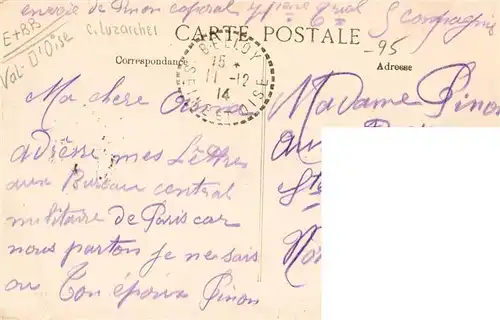 envoie de Pinon caporal 4me Gnal S compagnie
E+BB
Val-D'Oise
C. Luzarchel
CARTE POSTALE
-95-
Correspondance
Adresse
BELLOY
SEINE-ET-OISE
15 *
11-12
14
Ma chere
adresse mes Lettres
aux Bureau central
militaire de Paris car
nous parton je ne sais
ou Ton époux Pinon
Madame Pinon
au
Ste